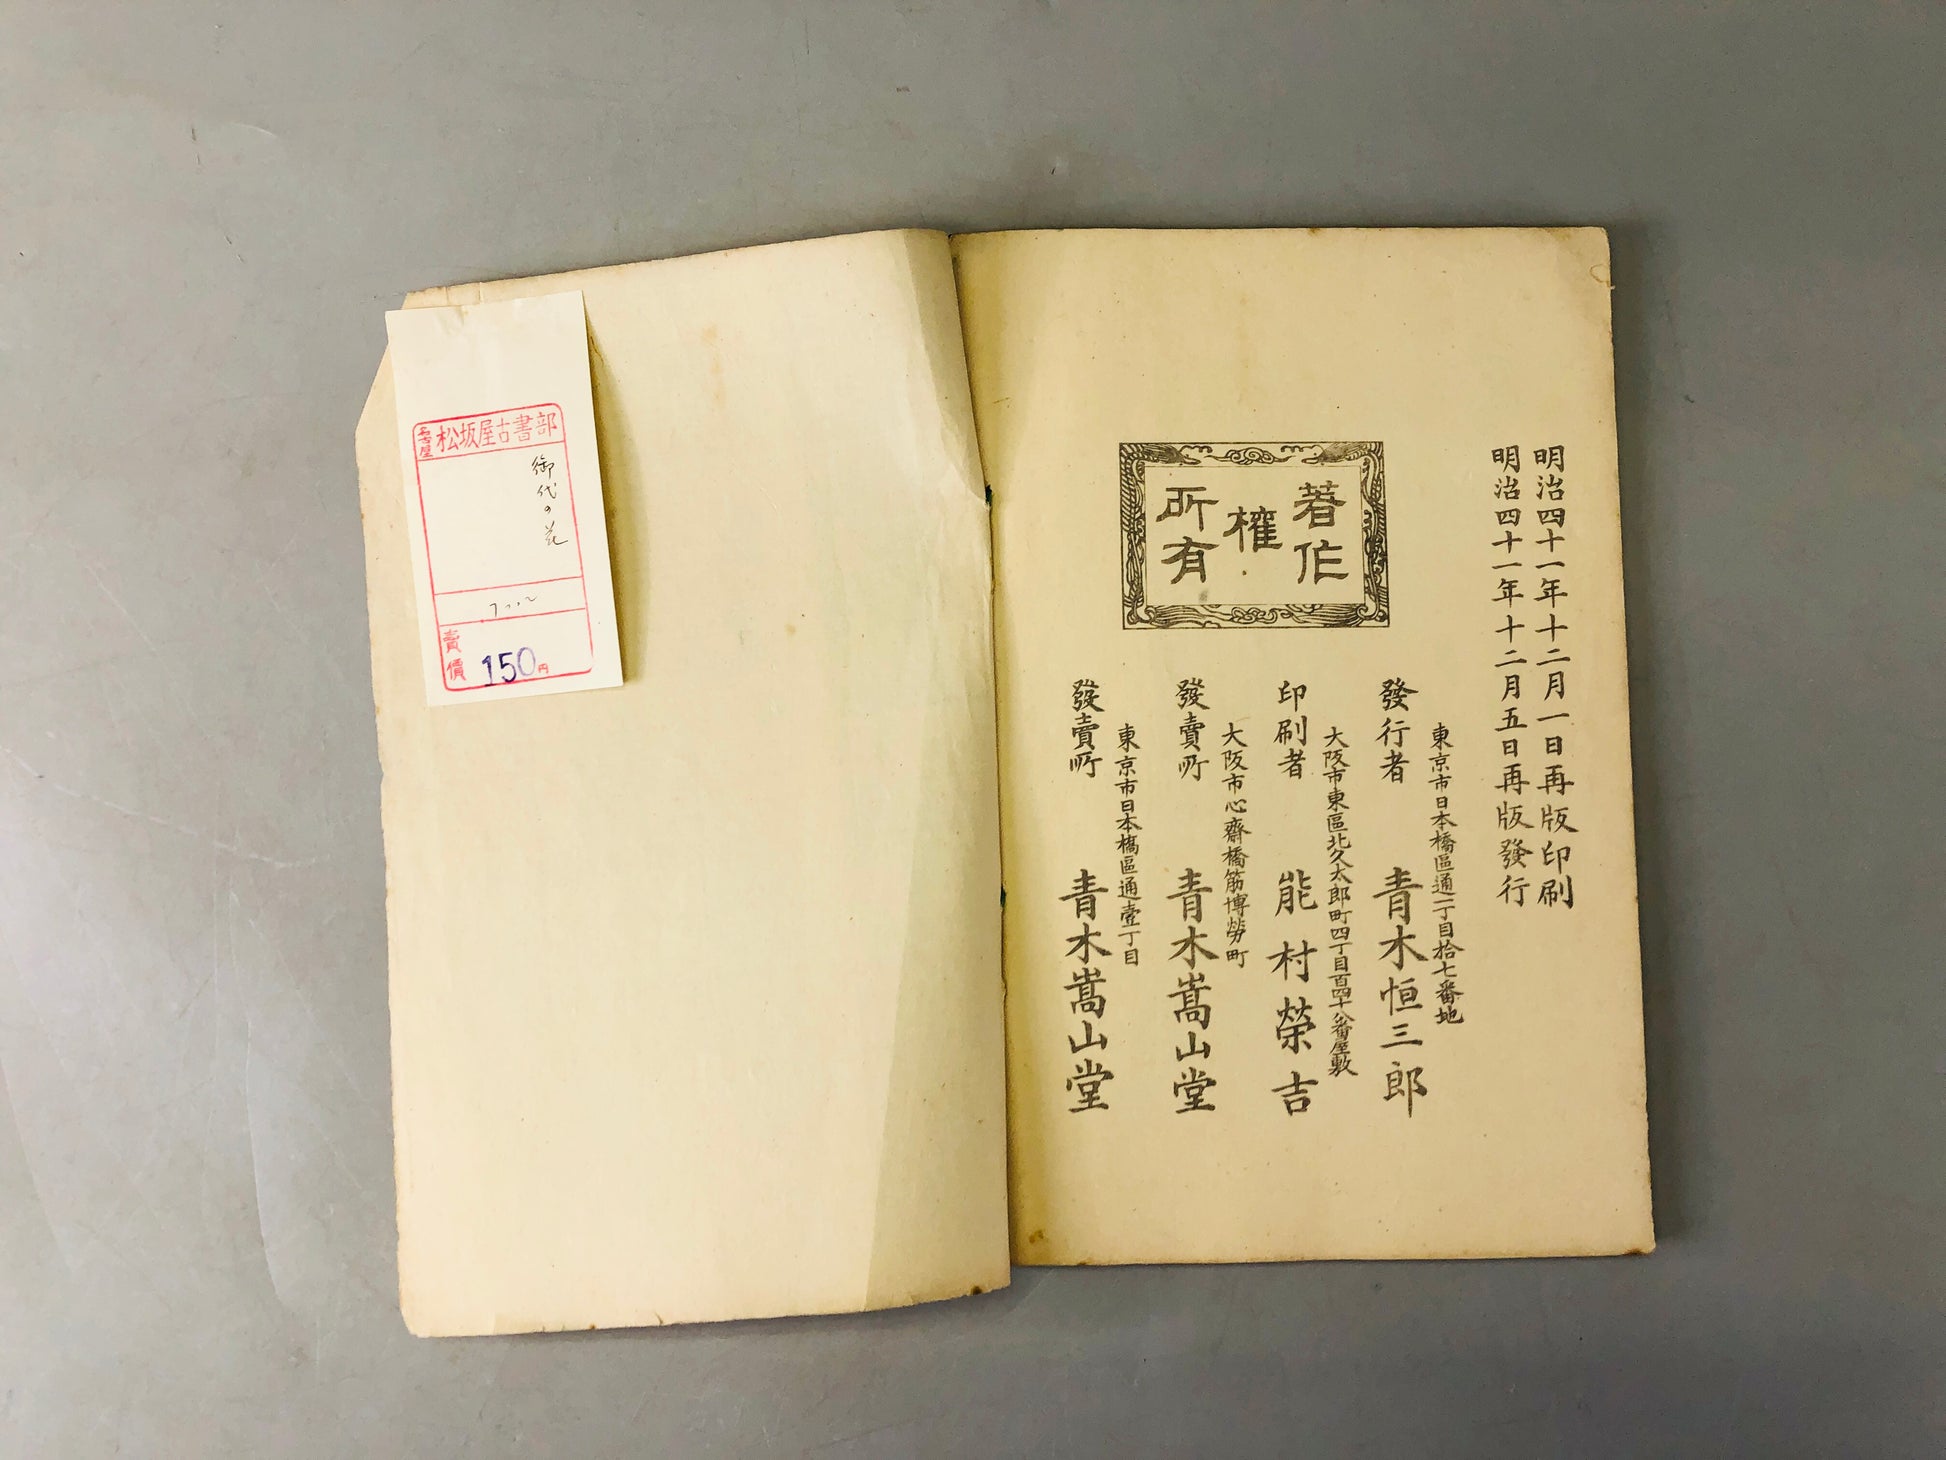 明治四十一年十二月一日再版印刷
明治四十一年十二月五日再版發行
著作
權
所有
東京市日本橋區通一丁目拾七番地
發行者 青木恒三郎
大阪市東區北久太郎町四丁目百四十八番屋敷
印刷者 能村榮吉
大阪市心齋橋筋博勞町
發賣所 青木嵩山堂
東京市日本橋區通壹丁目
發賣所 青木嵩山堂
名古屋 松坂屋古書部
御代の花
賣價 150円